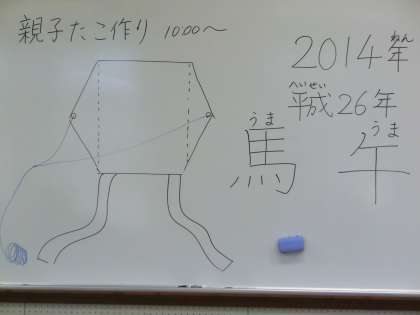 親子たこ作り 10:00〜
2014年
ねん
へいせい
平成26年
うま
馬
うま
午